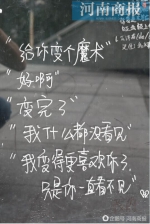 河南商报
"给你变个魔术"
"好啊"
"变完了"
"我什么都没看见"
"我变得更喜欢你了
只是你一直看不见"
河南商报